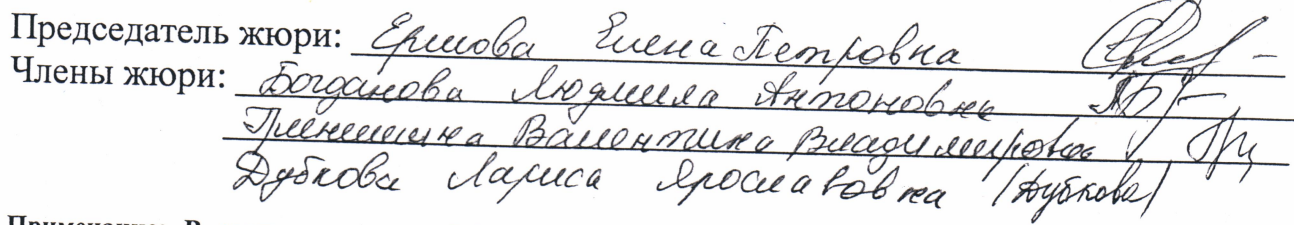 Председатель жюри: Ершова Елена Петровна
Члены жюри: Богданова Людмила Антоновна
Валентина Владимировна
Дубкова Лариса Ярославовна (Дубкова)